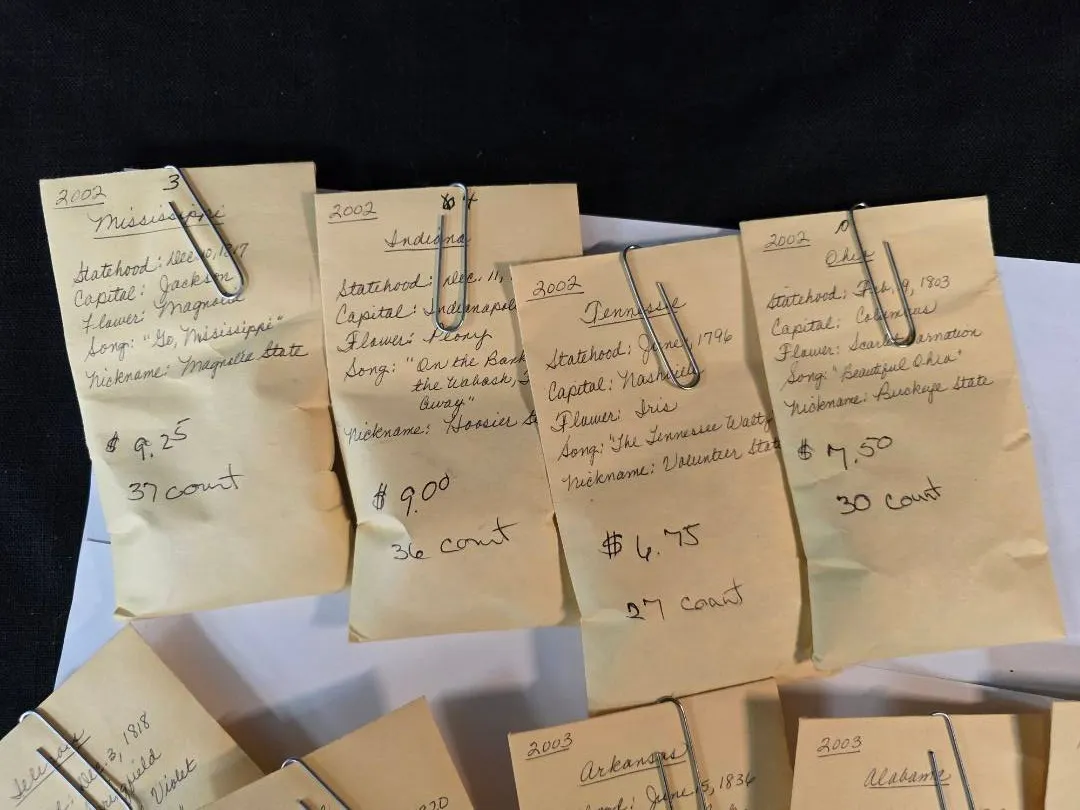 2002 3
Mississippi
Statehood: Dec. 10, 1817
Capital: Jackson
Flower: Magnolia
Song: "Go, Mississippi"
Nickname: Magnolia State
$ 9.25
37 count
2002 4
Indiana
Statehood: Dec. 11,
Capital: Indianapol
Flower: Peony
Song: "On the Bank
the Wabash,
Away"
Nickname: Hoosier
$ 9.00
36 count
2002
Tennessee
Statehood: June 1, 1796
Capital: Nashville
Flower: Iris
Song: "The Tennessee Waltz
Nickname: Volunteer Stat
$ 6.75
27 count
2002
Ohio
Statehood: Feb. 9, 1803
Capital: Columbus
Flower: Scarlet Carnation
Song: "Beautiful Ohio"
Nickname: Buckeye State
$ 7.50
30 count
Illinois
Dec. 3, 1818
ingfield
Violet
820
2003
Arkansas
June 15, 1836
2003
Alabama